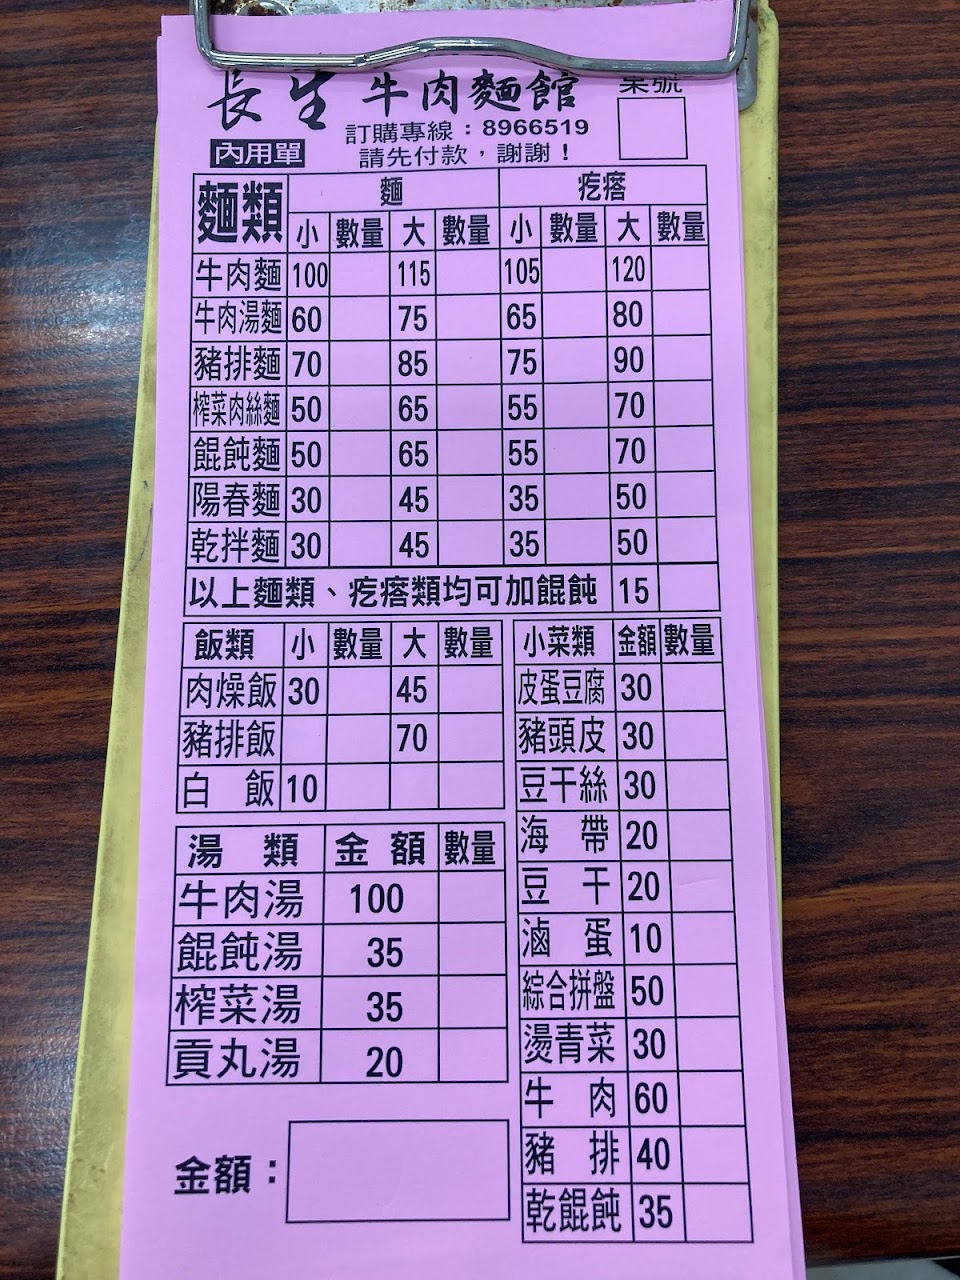 長生 牛肉麵館
桌號
訂購專線：8966519
內用單
請先付款，謝謝！
麵類 麵 疙瘩
小 數量 大 數量 小 數量 大 數量
牛肉麵 100 115 105 120
牛肉湯麵 60 75 65 80
豬排麵 70 85 75 90
榨菜肉絲麵 50 65 55 70
餛飩麵 50 65 55 70
陽春麵 30 45 35 50
乾拌麵 30 45 35 50
以上麵類、疙瘩類均可加餛飩 15
飯類 小 數量 大 數量
肉燥飯 30 45
豬排飯 70
白飯 10
湯類 金額 數量
牛肉湯 100
餛飩湯 35
榨菜湯 35
貢丸湯 20
金額：
小菜類 金額 數量
皮蛋豆腐 30
豬頭皮 30
豆干絲 30
海帶 20
豆干 20
滷蛋 10
綜合拼盤 50
燙青菜 30
牛肉 60
豬排 40
乾餛飩 35